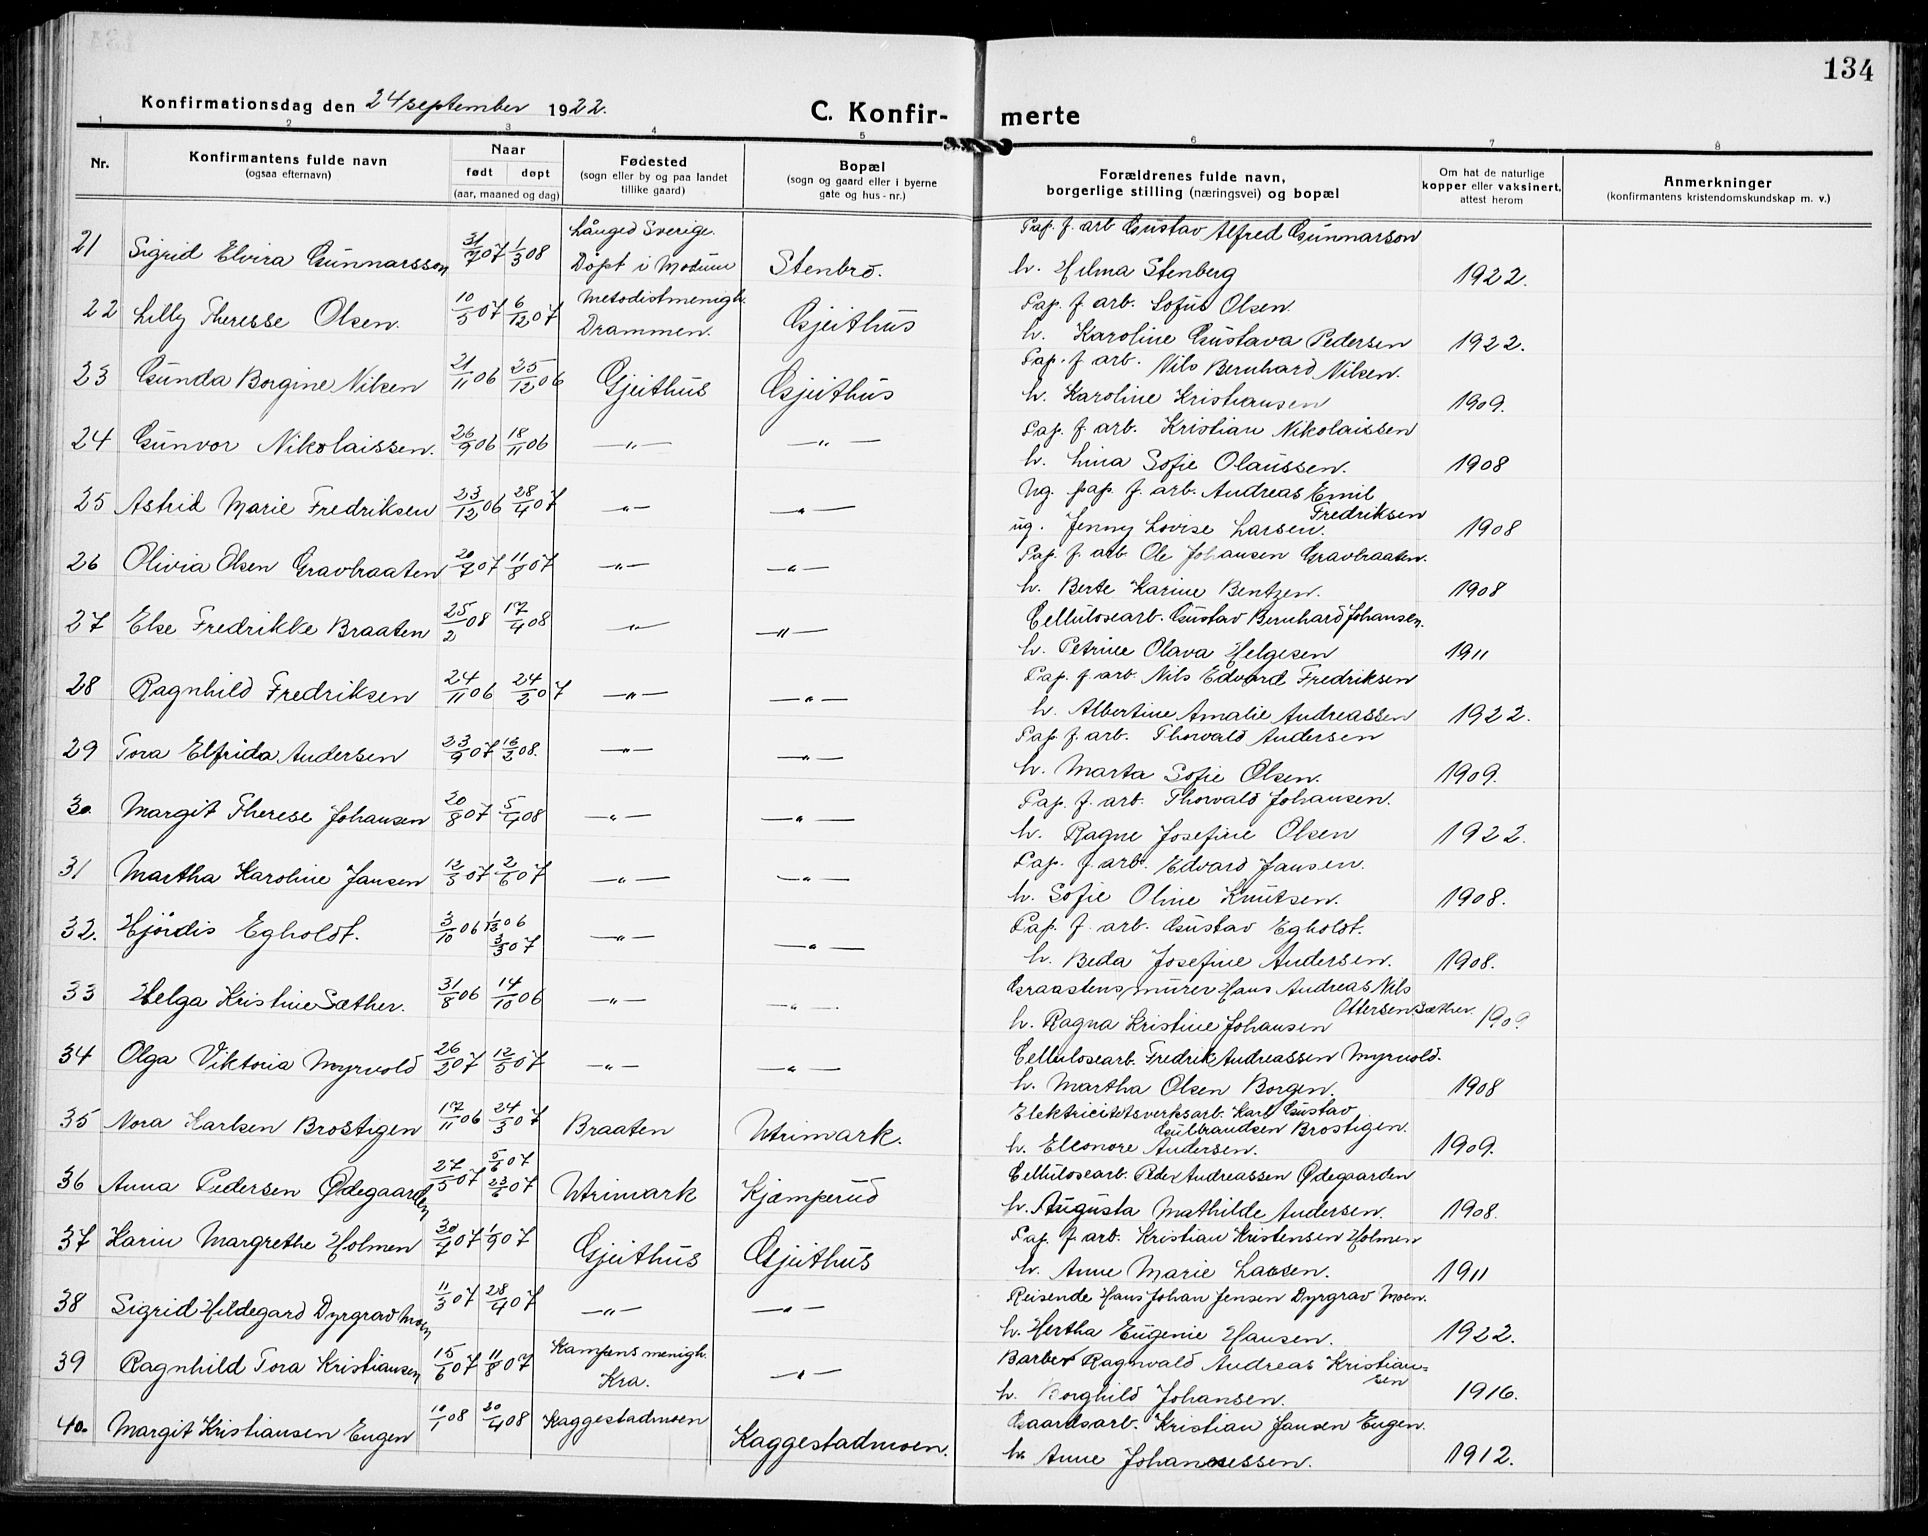 134
Konfirmationsdag den 24 september 1922.
C. Konfir- merte
1 2 3 4 5 6 7 8
Nr.
Konfirmantens fulde navn
(ogsaa efternavn)
Naar
født døpt
(aar, maaned og dag)
Fødested
(sogn eller by og paa landet
tillike gaard)
Bopæl
(sogn og gaard eller i byerne
gate og hus-nr.)
Forældrenes fulde navn,
borgerlige stilling (næringsvei) og bopæl
Om hat de naturlige
kopper eller vaksinert.
attest herom
Anmerkninger
(konfirmantens kristendomskundskap m. v.)
Långed Sverige. Pap. f. arb Gustav Alfred Gunnarson
21 Sigrid Elvira Gunnarsson 31/7 07 1/3 08 Döpt i Modum Stenbro. h. Hilma Stenberg 1922.
Metodistmenigh. Pap. f arb. Sofus Olsen.
22 Lilly Theresse Olsen. 10/5 07 6/12 07 Drammen. Gjeithus h. Karoline Gustava Pedersen 1922.
Pap. f arb. Nils Bernhard Nilsen.
23 Gunda Borgine Nilsen 21/11 06 25/12 06 Gjeithus Gjeithus h. Karoline Kristiansen 1909.
Pap. f. arb. Kristian Nikolaissen
24 Gunvor Nikolaissen. 26/9 06 18/11 06 —„— —„— h. Lina Sofie Olaussen. 1908
Ug. pap. f. arb. Andreas Emil
Fredriksen
25 Astrid Marie Fredriksen 23/12 06 28/4 07 —„— —„— ug. Jenny Lovise Larsen. 1908
Pap. f. arb Ole Johansen Gravbraaten.
26 Olivia Olsen Gravbraaten 20/7 07 11/8 07 —„— —„— h. Berte Karine Bentzen. 1908
Cellulosearb. Gustav Bernhard Johansen.
27 Else Fredrikke Braaten 25/2 08 17/4 08 —„— —„— h. Petrine Olava Helgesen 1911
Pap. f arb. Nils Edvard Fredriksen
28 Ragnhild Fredriksen 24/11 06 24/2 07 —„— —„— h. Albertine Amalie Andreassen 1922.
Pap. f. arb. Thorvald Andersen
29 Tora Elfrida Andersen 23/9 07 16/2 08. —„— —„— h. Marta Sofie Olsen. 1909.
Pap. f. arb. Thorvald Johansen.
30. Margit Therese Johansen 20/8 07 5/4 08 —„— —„— h. Ragne Josefine Olsen 1922.
Pap. f. arb. Edvard Jansen.
31 Martha Karoline Jansen 12/5 07 2/6 07 —„— —„— h. Sofie Oline Knutsen. 1908.
Pap. f. arb. Gustav Egholdt.
32. Hjördis Egholdt. 3/10 06 06
3/3 07 —„— —„— h. Beda Josefine Andersen. 1908.
Graastensmurer Hans Andreas Nils
Ottersen Sæther.
33 Helga Kristine Sæther. 31/8 06 14/10 06 —„— —„— h. Ragna Kristine Johansen 1909
Cellulosearb. Fredrik Andreassen Myrvold.
34 Olga Viktoria Myrvold 26/2 07 12/5 07 —„— —„— h. Martha Olsen Borgen. 1908
Elektricitetsverksarb. Karl Gustav
Gulbrandsen Brostigen.
35 Nora Karlsen Brostigen 17/11 06 24/3 07 Braaten Utrimark. h. Elleonore Andersen. 1909.
5/6 07 Cellulosearb. Peder Andreassen Ødegaarden
36 Anna Pedersen Ødegaarden 27/5 07 23/6 07 Utrimark Kjæmperud h. Augusta Mathilde Andersen. 1908.
Pap. f. arb. Kristian Kristensen Holmen
37 Karin Margrethe Holmen 30/7 07 1/9 07 Gjeithus Gjeithus h. Anne Marie Larsen. 1911
Reisende Hans Johan Jensen Dyrgrav Moen.
38 Sigrid Hildegard Dyrgrav Moen 11/3 07 28/4 07 —„— —„— h. Hertha Eugenie Hansen. 1922.
Kampens menigh. Barber Ragnvald Andreas Kristian=
sen
39 Ragnhild Tora Kristiansen 15/6 07 11/8 07 Kra. —„— h. Borghild Johansen. 1916.
Gaardsarb. Kristian Jansen Eugen.
40. Margit Kristiansen Eugen 10/1 08 20/4 08 Kaggestadmoen Kaggestadmoen. h. Anne Johannessen. 1912.